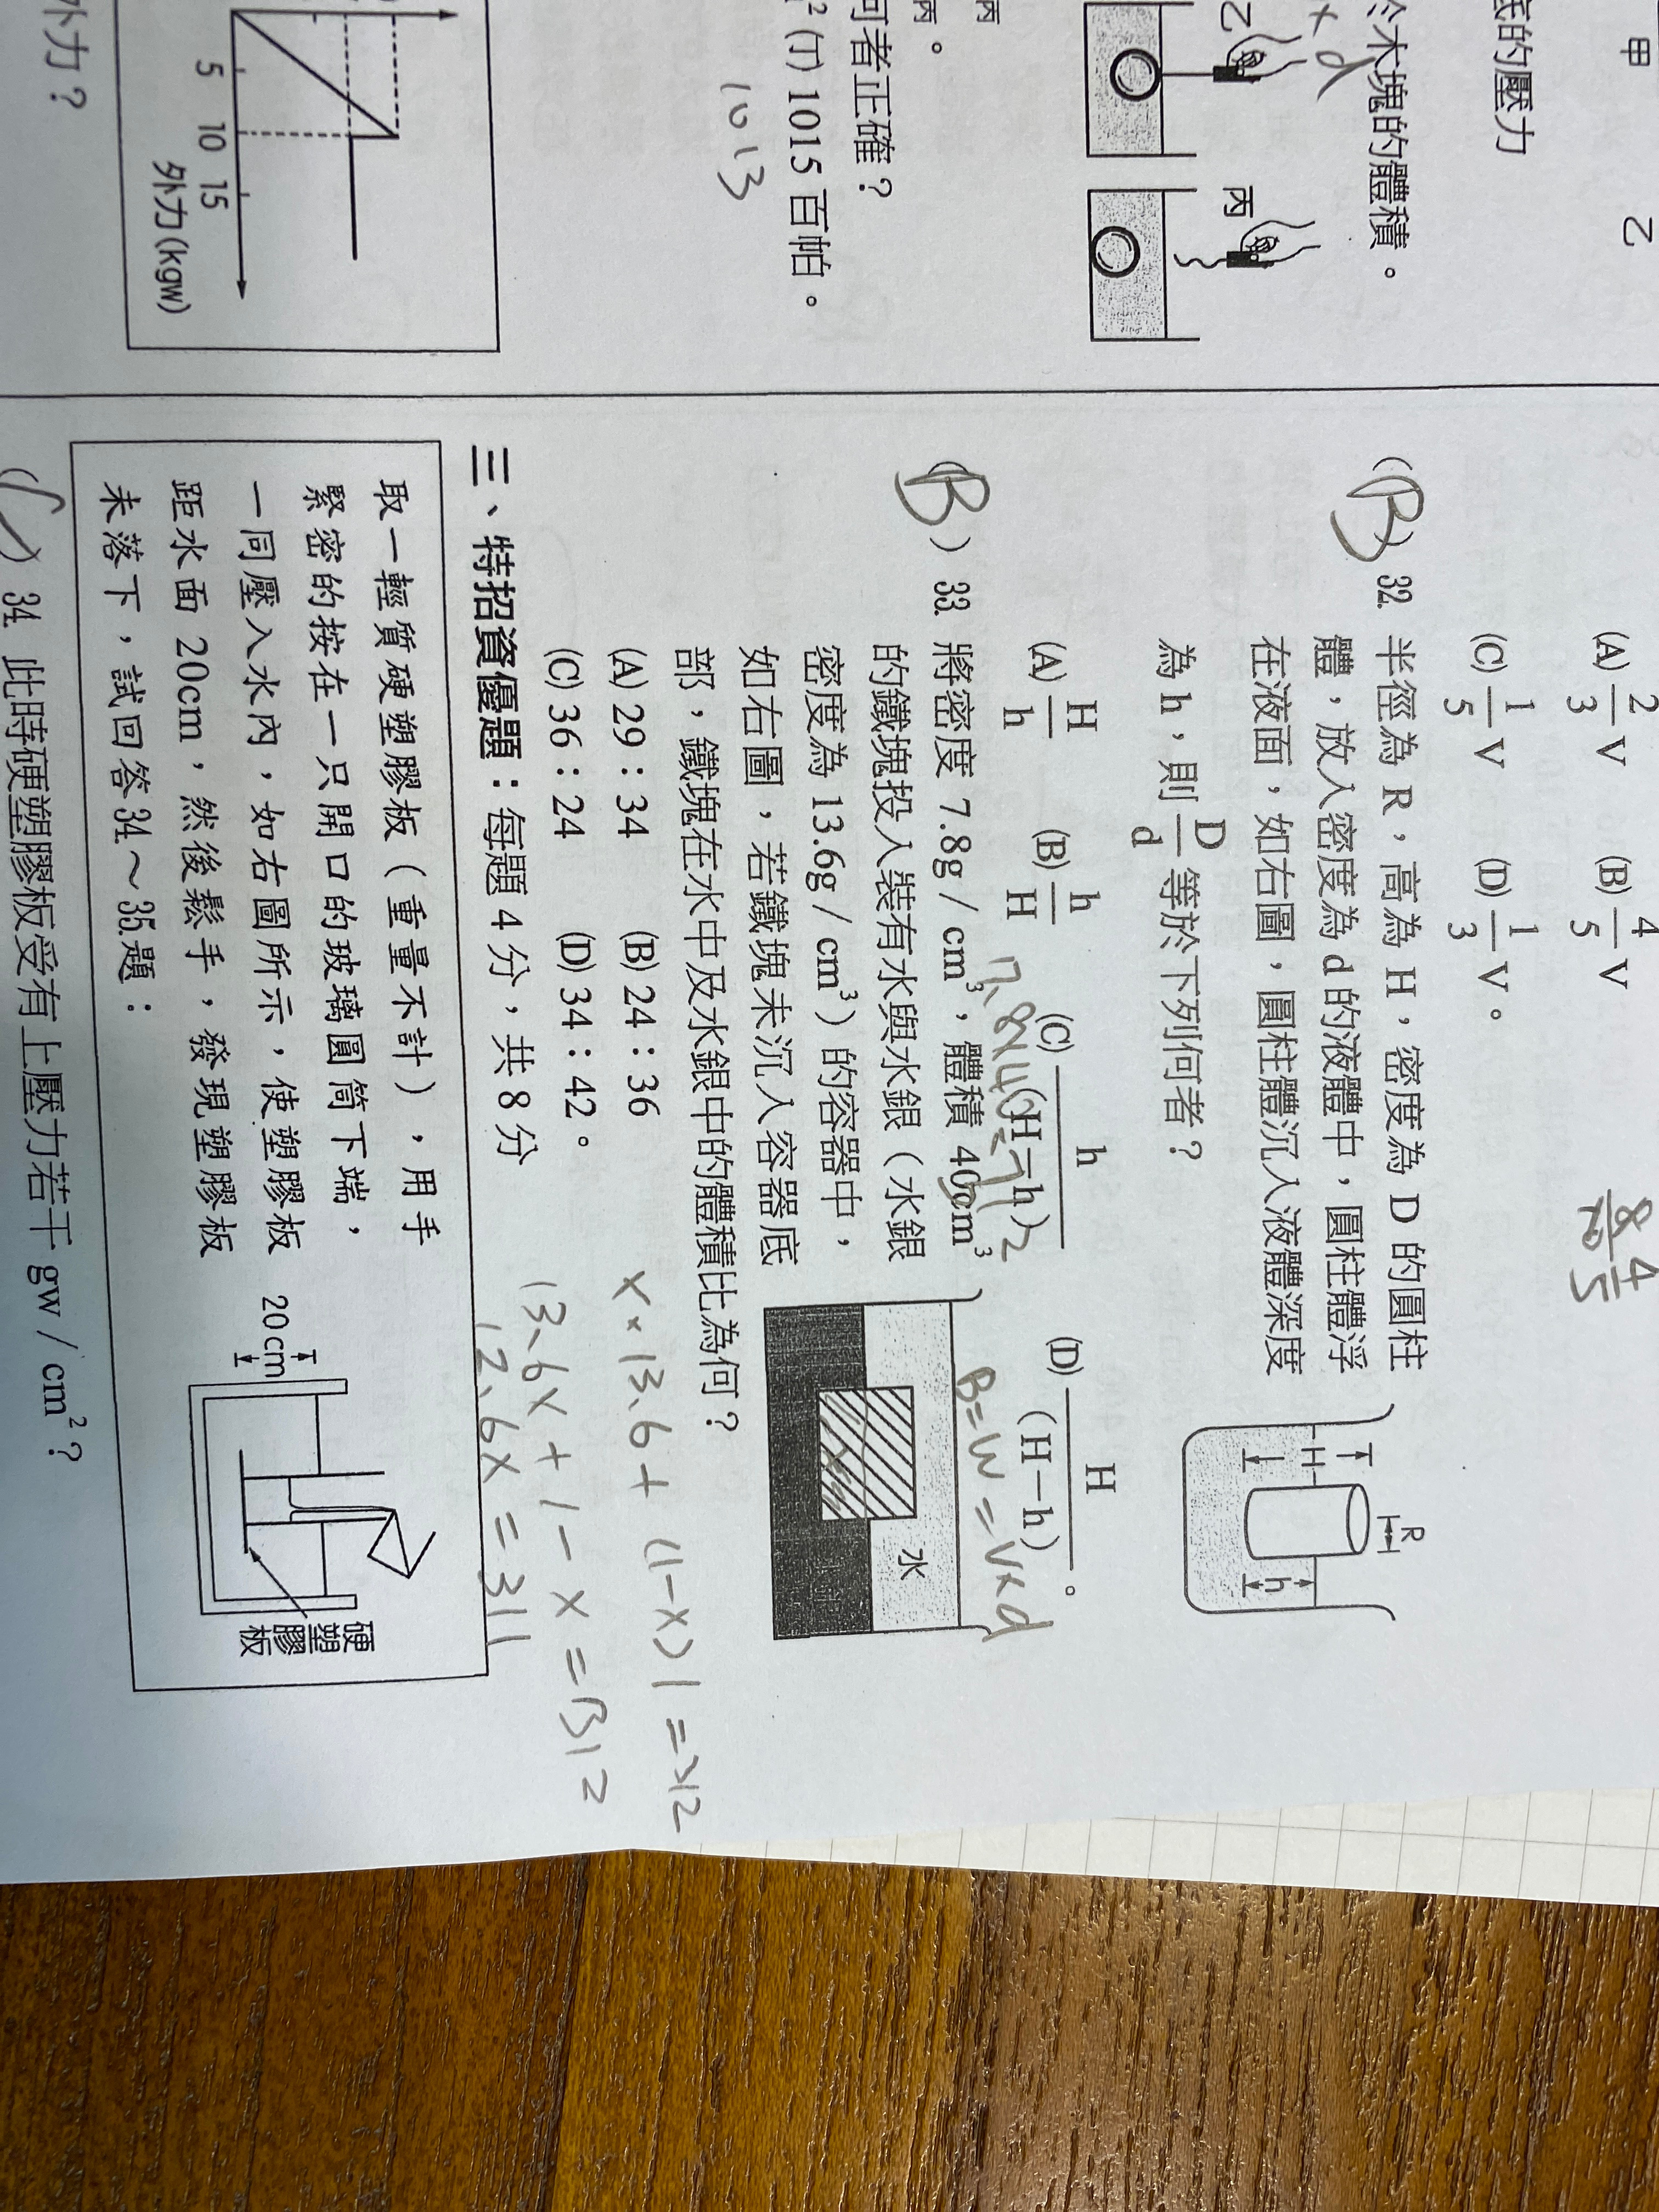 甲 乙
底的壓力
於木塊的體積。
x d
乙
丙
丙
丙。
何者正確？
² (丁) 1015 百帕。
1013
5 10 15
外力(kgw)
外力？
(A) 2/3 V (B) 4/5 V
(C) 1/5 V (D) 1/3 V。
4/5
(B) 32. 半徑為 R，高為 H，密度為 D 的圓柱
體，放入密度為 d 的液體中，圓柱體浮
在液面，如右圖，圓柱體沉入液體深度
為 h，則 D/d 等於下列何者？
R
H
h
(A) H/h (B) h/H (C) h/(H−h) (D) H/(H−h)。
B=W=V×d
(B) 33. 將密度 7.8g / cm³，體積 40cm³
的鐵塊投入裝有水與水銀（水銀
密度為 13.6g / cm³）的容器中，
如右圖，若鐵塊未沉入容器底
部，鐵塊在水中及水銀中的體積比為何？
水
(A) 29：34 (B) 24：36
(C) 36：24 (D) 34：42。
x×13.6+(1-x)1=312
13.6x+1-x=312
12.6x=311
三、特招資優題：每題 4 分，共 8 分
取一輕質硬塑膠板（重量不計），用手
緊密的按在一只開口的玻璃圓筒下端，
一同壓入水內，如右圖所示，使塑膠板
距水面 20cm，然後鬆手，發現塑膠板
未落下，試回答34.～35.題：
20cm
硬塑膠板
34. 此時硬塑膠板受有上壓力若干 gw / cm²？